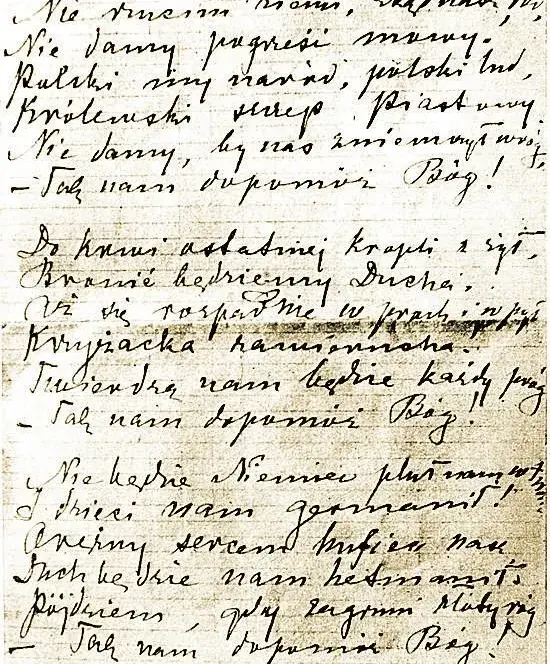 Nie rzucim ziemi, skąd nasz
Nie damy pogrześć mowy.
Polski my naród, polski lud,
Królewski szczep Piastowy
Nie damy, by nas zniemczył wróg
– Tak nam dopomóż Bóg!
Do krwi ostatniej kropli z żył,
Bronić będziemy Ducha.
Aż się rozpadnie w proch i w pył
Krzyżacka zawierucha.
Twierdzą nam będzie każdy próg
– Tak nam dopomóż Bóg!
Nie będzie Niemiec pluł nam w twarz
I dzieci nam germanił!
Orężny sercem hufiec nasz
Duch będzie nam hetmanił.
Pójdziem, gdy zagrzmi złoty róg
– Tak nam dopomóż Bóg!